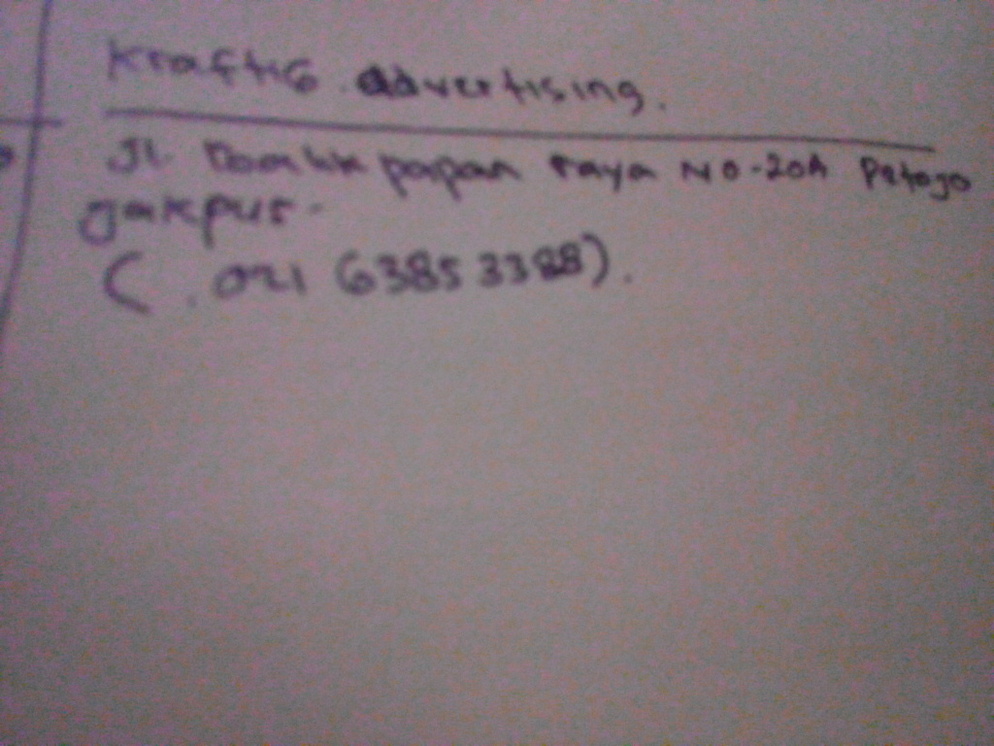 Kraftig advertising.
Jl. papan raya No-20A Petojo
jakpus.
(. 021 6385 3388).